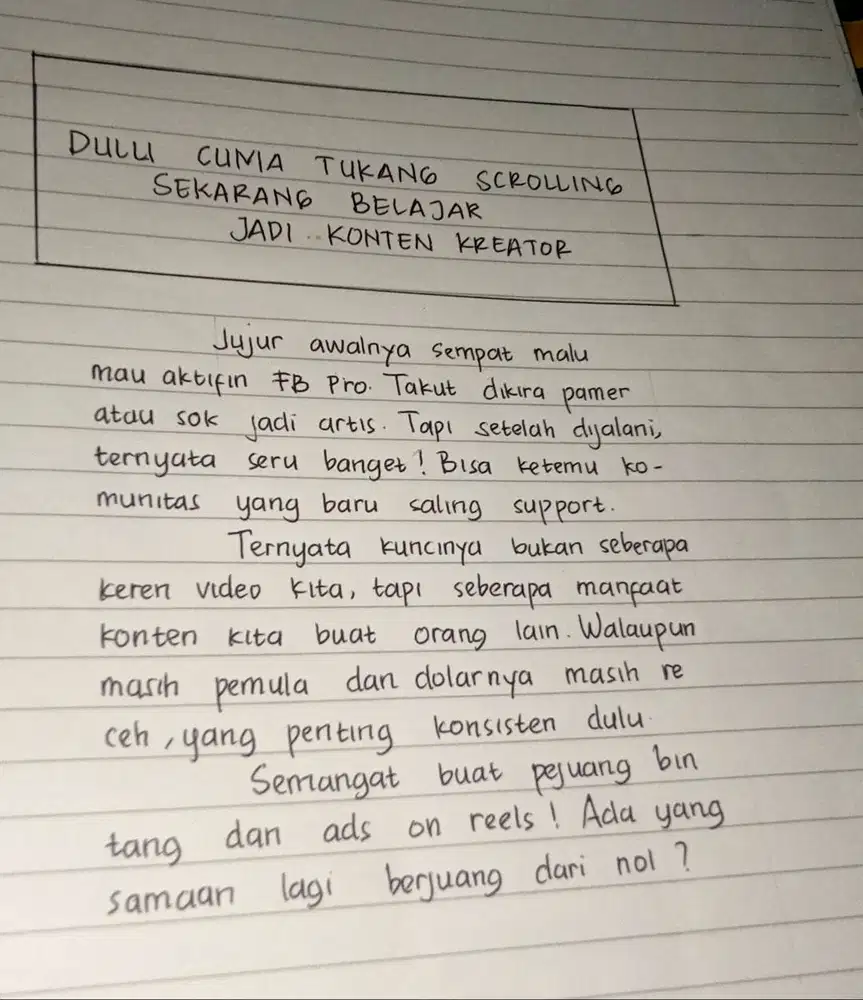 DULU CUMA TUKANG SCROLLING
SEKARANG BELAJAR
JADI KONTEN KREATOR
Jujur awalnya sempat malu
mau aktifin FB Pro. Takut dikira pamer
atau sok jadi artis. Tapi setelah dijalani,
ternyata seru banget! Bisa ketemu ko-
munitas yang baru saling support.
Ternyata kuncinya bukan seberapa
keren video kita, tapi seberapa manfaat
konten kita buat orang lain. Walaupun
masih pemula dan dolarnya masih re
ceh, yang penting konsisten dulu.
Semangat buat pejuang bin
tang dan ads on reels! Ada yang
samaan lagi berjuang dari nol?